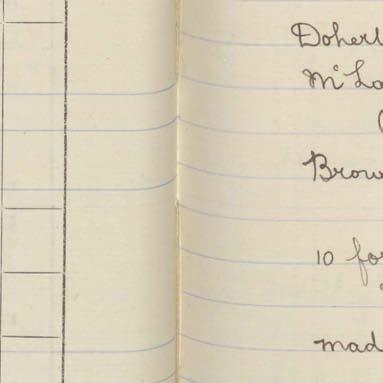 Dohert
McLa
Brow
10 for
mad